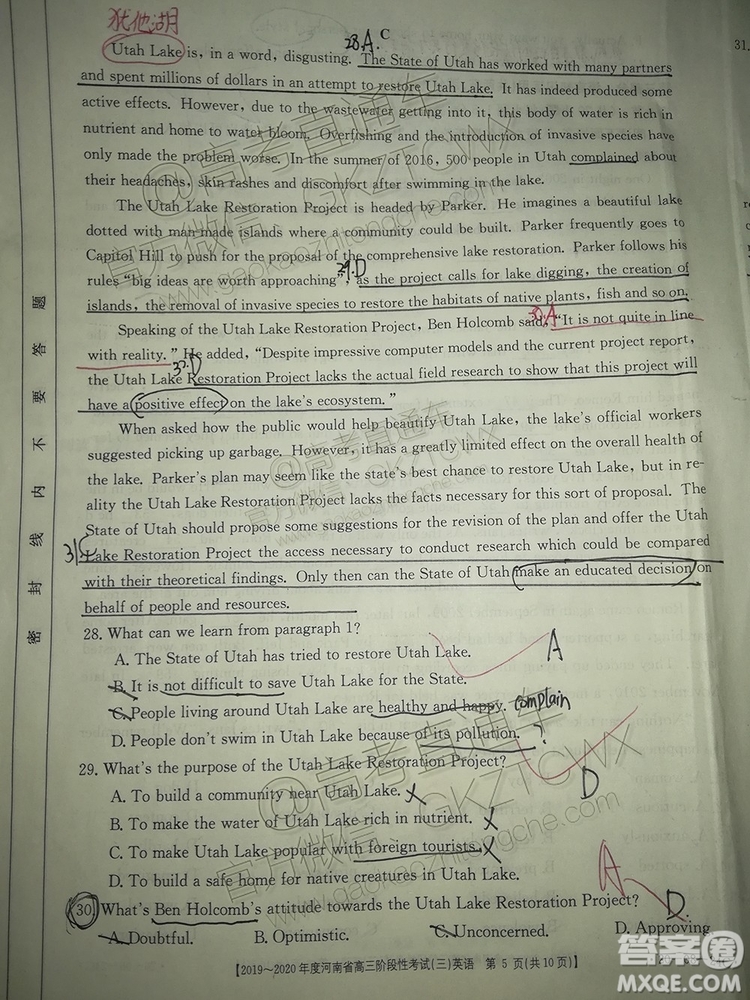 犹他湖
28.A. C
Utah Lake is, in a word, disgusting. The State of Utah has worked with many partners
and spent millions of dollars in an attempt to restore Utah Lake. It has indeed produced some
active effects. However, due to the wastewater getting into it, this body of water is rich in
nutrient and home to water bloom. Overfishing and the introduction of invasive species have
only made the problem worse. In the summer of 2016, 500 people in Utah complained about
their headaches, skin rashes and discomfort after swimming in the lake.
The Utah Lake Restoration Project is headed by Parker. He imagines a beautiful lake
dotted with man-made islands where a community could be built. Parker frequently goes to
Capitol Hill to push for the proposal of the comprehensive lake restoration. Parker follows his
29.D
rules "big ideas are worth approaching", as the project calls for lake digging, the creation of
islands, the removal of invasive species to restore the habitats of native plants, fish and so on.
30.A
Speaking of the Utah Lake Restoration Project, Ben Holcomb said, "It is not quite in line
with reality." He added, "Despite impressive computer models and the current project report,
the Utah Lake Restoration Project lacks the actual field research to show that this project will
have a positive effect on the lake's ecosystem."
When asked how the public would help beautify Utah Lake, the lake's official workers
suggested picking up garbage. However, it has a greatly limited effect on the overall health of
the lake. Parker's plan may seem like the state's best chance to restore Utah Lake, but in re-
ality the Utah Lake Restoration Project lacks the facts necessary for this sort of proposal. The
State of Utah should propose some suggestions for the revision of the plan and offer the Utah
Lake Restoration Project the access necessary to conduct research which could be compared
with their theoretical findings. Only then can the State of Utah make an educated decision on
behalf of people and resources.
28. What can we learn from paragraph 1?
A. The State of Utah has tried to restore Utah Lake. A
B. It is not difficult to save Utah Lake for the State.
C. People living around Utah Lake are healthy and happy. complain
D. People don't swim in Utah Lake because of its pollution. ?
29. What's the purpose of the Utah Lake Restoration Project?
A. To build a community near Utah Lake. D
B. To make the water of Utah Lake rich in nutrient.
C. To make Utah Lake popular with foreign tourists.
D. To build a safe home for native creatures in Utah Lake.
A
30. What's Ben Holcomb's attitude towards the Utah Lake Restoration Project? D.
A. Doubtful. B. Optimistic. C. Unconcerned. D. Approving
【2019～2020年度河南省高三阶段性考试(三)英语 第5页(共10页)】
密封线内不要答题
31.
@高考直通车
官方微信:GKZTCWX
www.gaokaozhitongche.com
答案圈
MXQE.COM